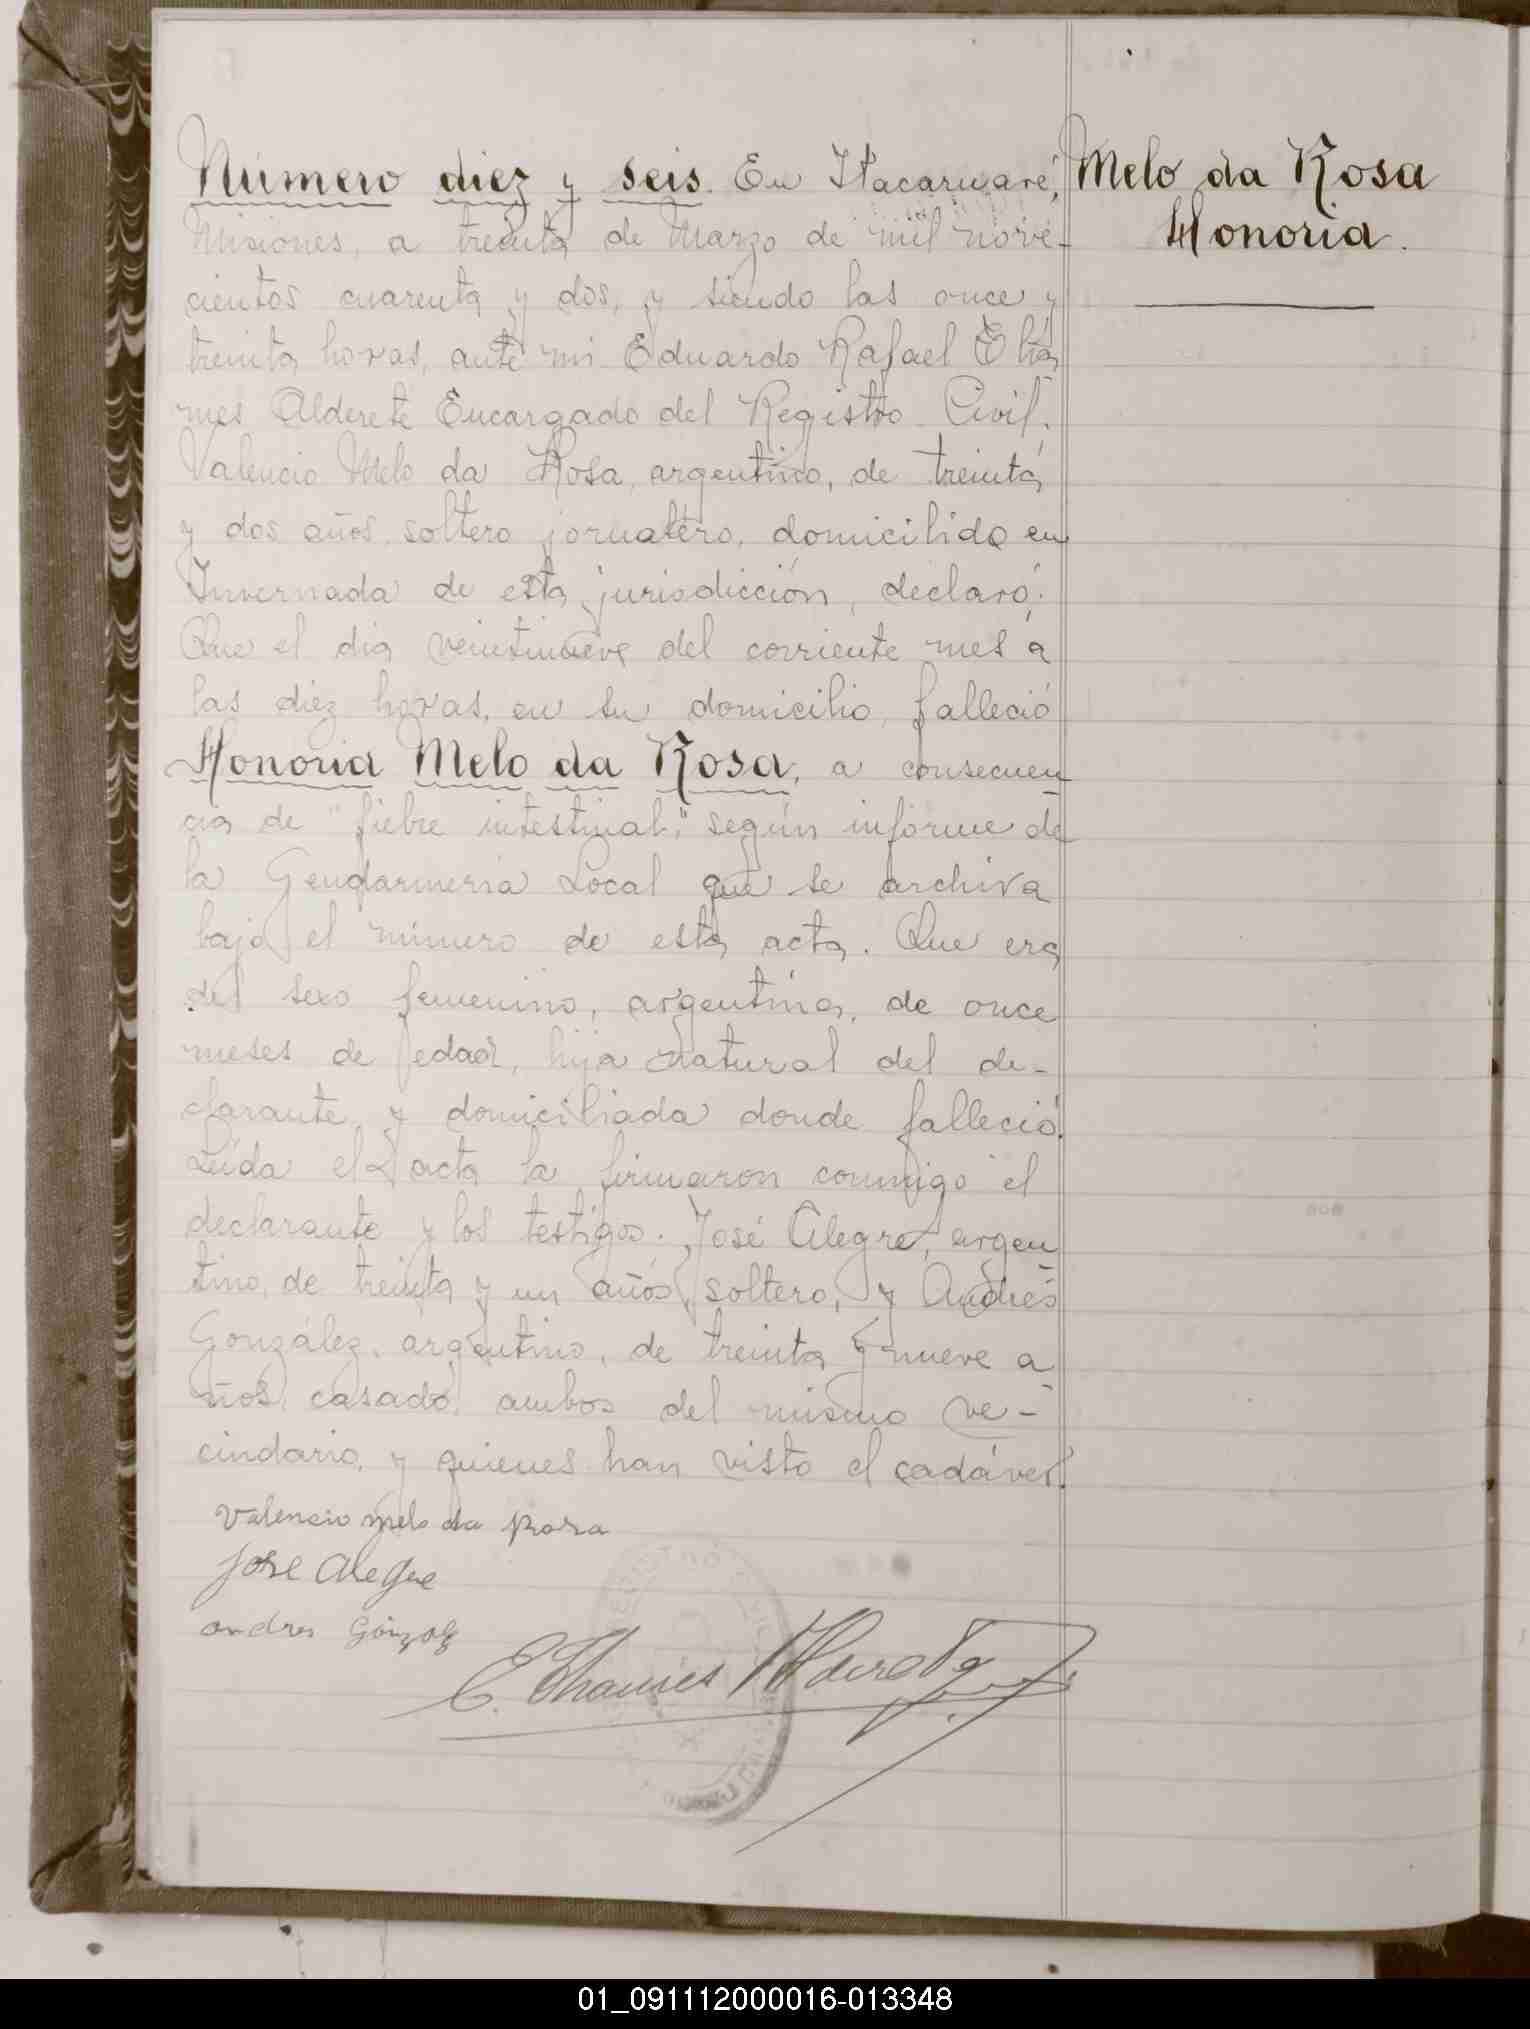 Número diez y seis. En Itacaruaré,
Misiones, a treinta de Marzo de mil nove-
cientos cuarenta y dos, y siendo las once y
treinta horas, ante mi Eduardo Rafael Etha
mes Alderete Encargado del Registro Civil,
Valencio Melo da Rosa, argentino, de treinta
y dos años, soltero jornalero, domicilido en
Invernada de esta jurisdicción, declaró:
Que el día veintinueve del corriente mes á
las diez horas, en su domicilio, falleció
Honoria Melo da Rosa, a consecuen
cia de "fiebre intestinal," según informe de
la Gendarmería Local que se archiva
bajo el número de esta acta. Que era
del sexo femenino, argentina, de once
meses de edad, hija natural del de-
clarante y domiciliada donde falleció.
Leída el acta la firmaron conmigo el
declarante y los testigos. José Alegre, argen
tino, de treinta y un años, soltero, y Andrés
González, argentino, de treinta y nueve a
ños, casado, ambos del mismo ve-
cindario, y quienes han visto el cadáver.
Valencio melo da Rosa
Jose Alegre
andres Gonzalez
E. Ethames Alderete
Melo da Rosa
Honoria.
01_091112000016-013348